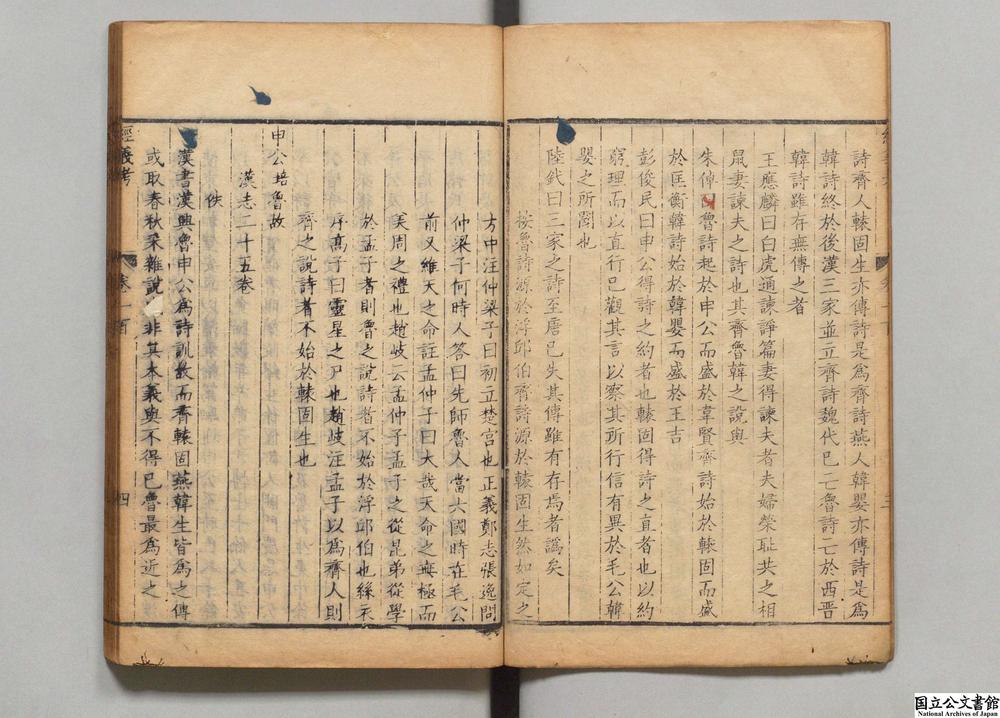 詩齊人轅固生亦傳詩是爲齊詩燕人韓嬰亦傳詩是爲
韓詩終於後漢三家並立齊詩魏代已亡魯詩亡於西晋
韓詩雖存無傳之者
王應麟曰白虎通諫諍篇妻得諫夫者夫婦榮耻共之相
鼠妻諫夫之詩也其齊魯韓之說與
朱倬曰魯詩起於申公而盛於韋賢齊詩始於轅固而盛
於匡衡韓詩始於韓嬰而盛於王吉
彭俊民曰申公得詩之約者也轅固得詩之直者也以約
窮理而以直行己觀其言以察其行信有異於毛公韓
嬰之所聞也
陸釴曰三家之詩至唐已失其傳雖有存焉者譌矣
按魯詩源於浮邱伯齊詩源於轅固生然如定之
方中注仲梁子曰初立楚宫也正義鄭志張逸問
仲梁子何時人答曰先師魯人當六國時在毛公
前又維天之命註孟仲子曰大哉天命之無極而
美周之禮也趙岐云孟仲子孟子之從昆弟從學
於孟子者則魯之說詩者不始於浮邱伯也絲衣
序髙子曰靈星之尸也趙岐注孟子以爲齊人則
齊之說詩者不始於轅固生也
申公培魯故
漢志二十五卷
佚
漢書漢興魯申公爲詩訓故而齊轅固燕韓生皆爲之傳
或取春秋采雜說非其本義與不得已魯最爲近之
經義考
卷一百
四
国立公文書館
National Archives of Japan